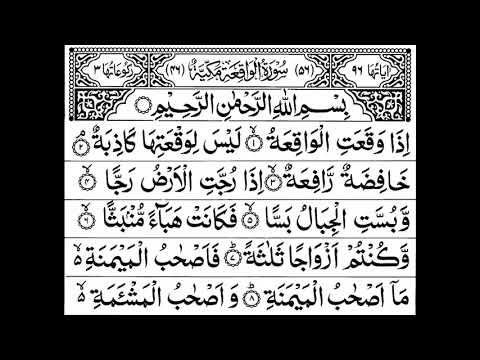 اٰیَاتُهَا ٩٦ (٥٦) سُوْرَةُ الْوَاقِعَةِ مَكِّیَّةٌ (٤٦) رُكُوْعَاتُهَا ٣
بِسْمِ اللّٰهِ الرَّحْمٰنِ الرَّحِیْمِ
اِذَا وَقَعَتِ الْوَاقِعَةُ ۙ۱ لَیْسَ لِوَقْعَتِهَا كَاذِبَةٌ ۘ۲
خَافِضَةٌ رَّافِعَةٌ ۙ۳ اِذَا رُجَّتِ الْاَرْضُ رَجًّا ۙ۴
وَّبُسَّتِ الْجِبَالُ بَسًّا ۙ۵ فَكَانَتْ هَبَآءً مُّنْۢبَثًّا ۙ۶
وَّكُنْتُمْ اَزْوَاجًا ثَلٰثَةً ؕ۷ فَاَصْحٰبُ الْمَیْمَنَةِ ۙ۬
مَاۤ اَصْحٰبُ الْمَیْمَنَةِ ؕ۸ وَ اَصْحٰبُ الْمَشْـَٔمَةِ ۙ۬